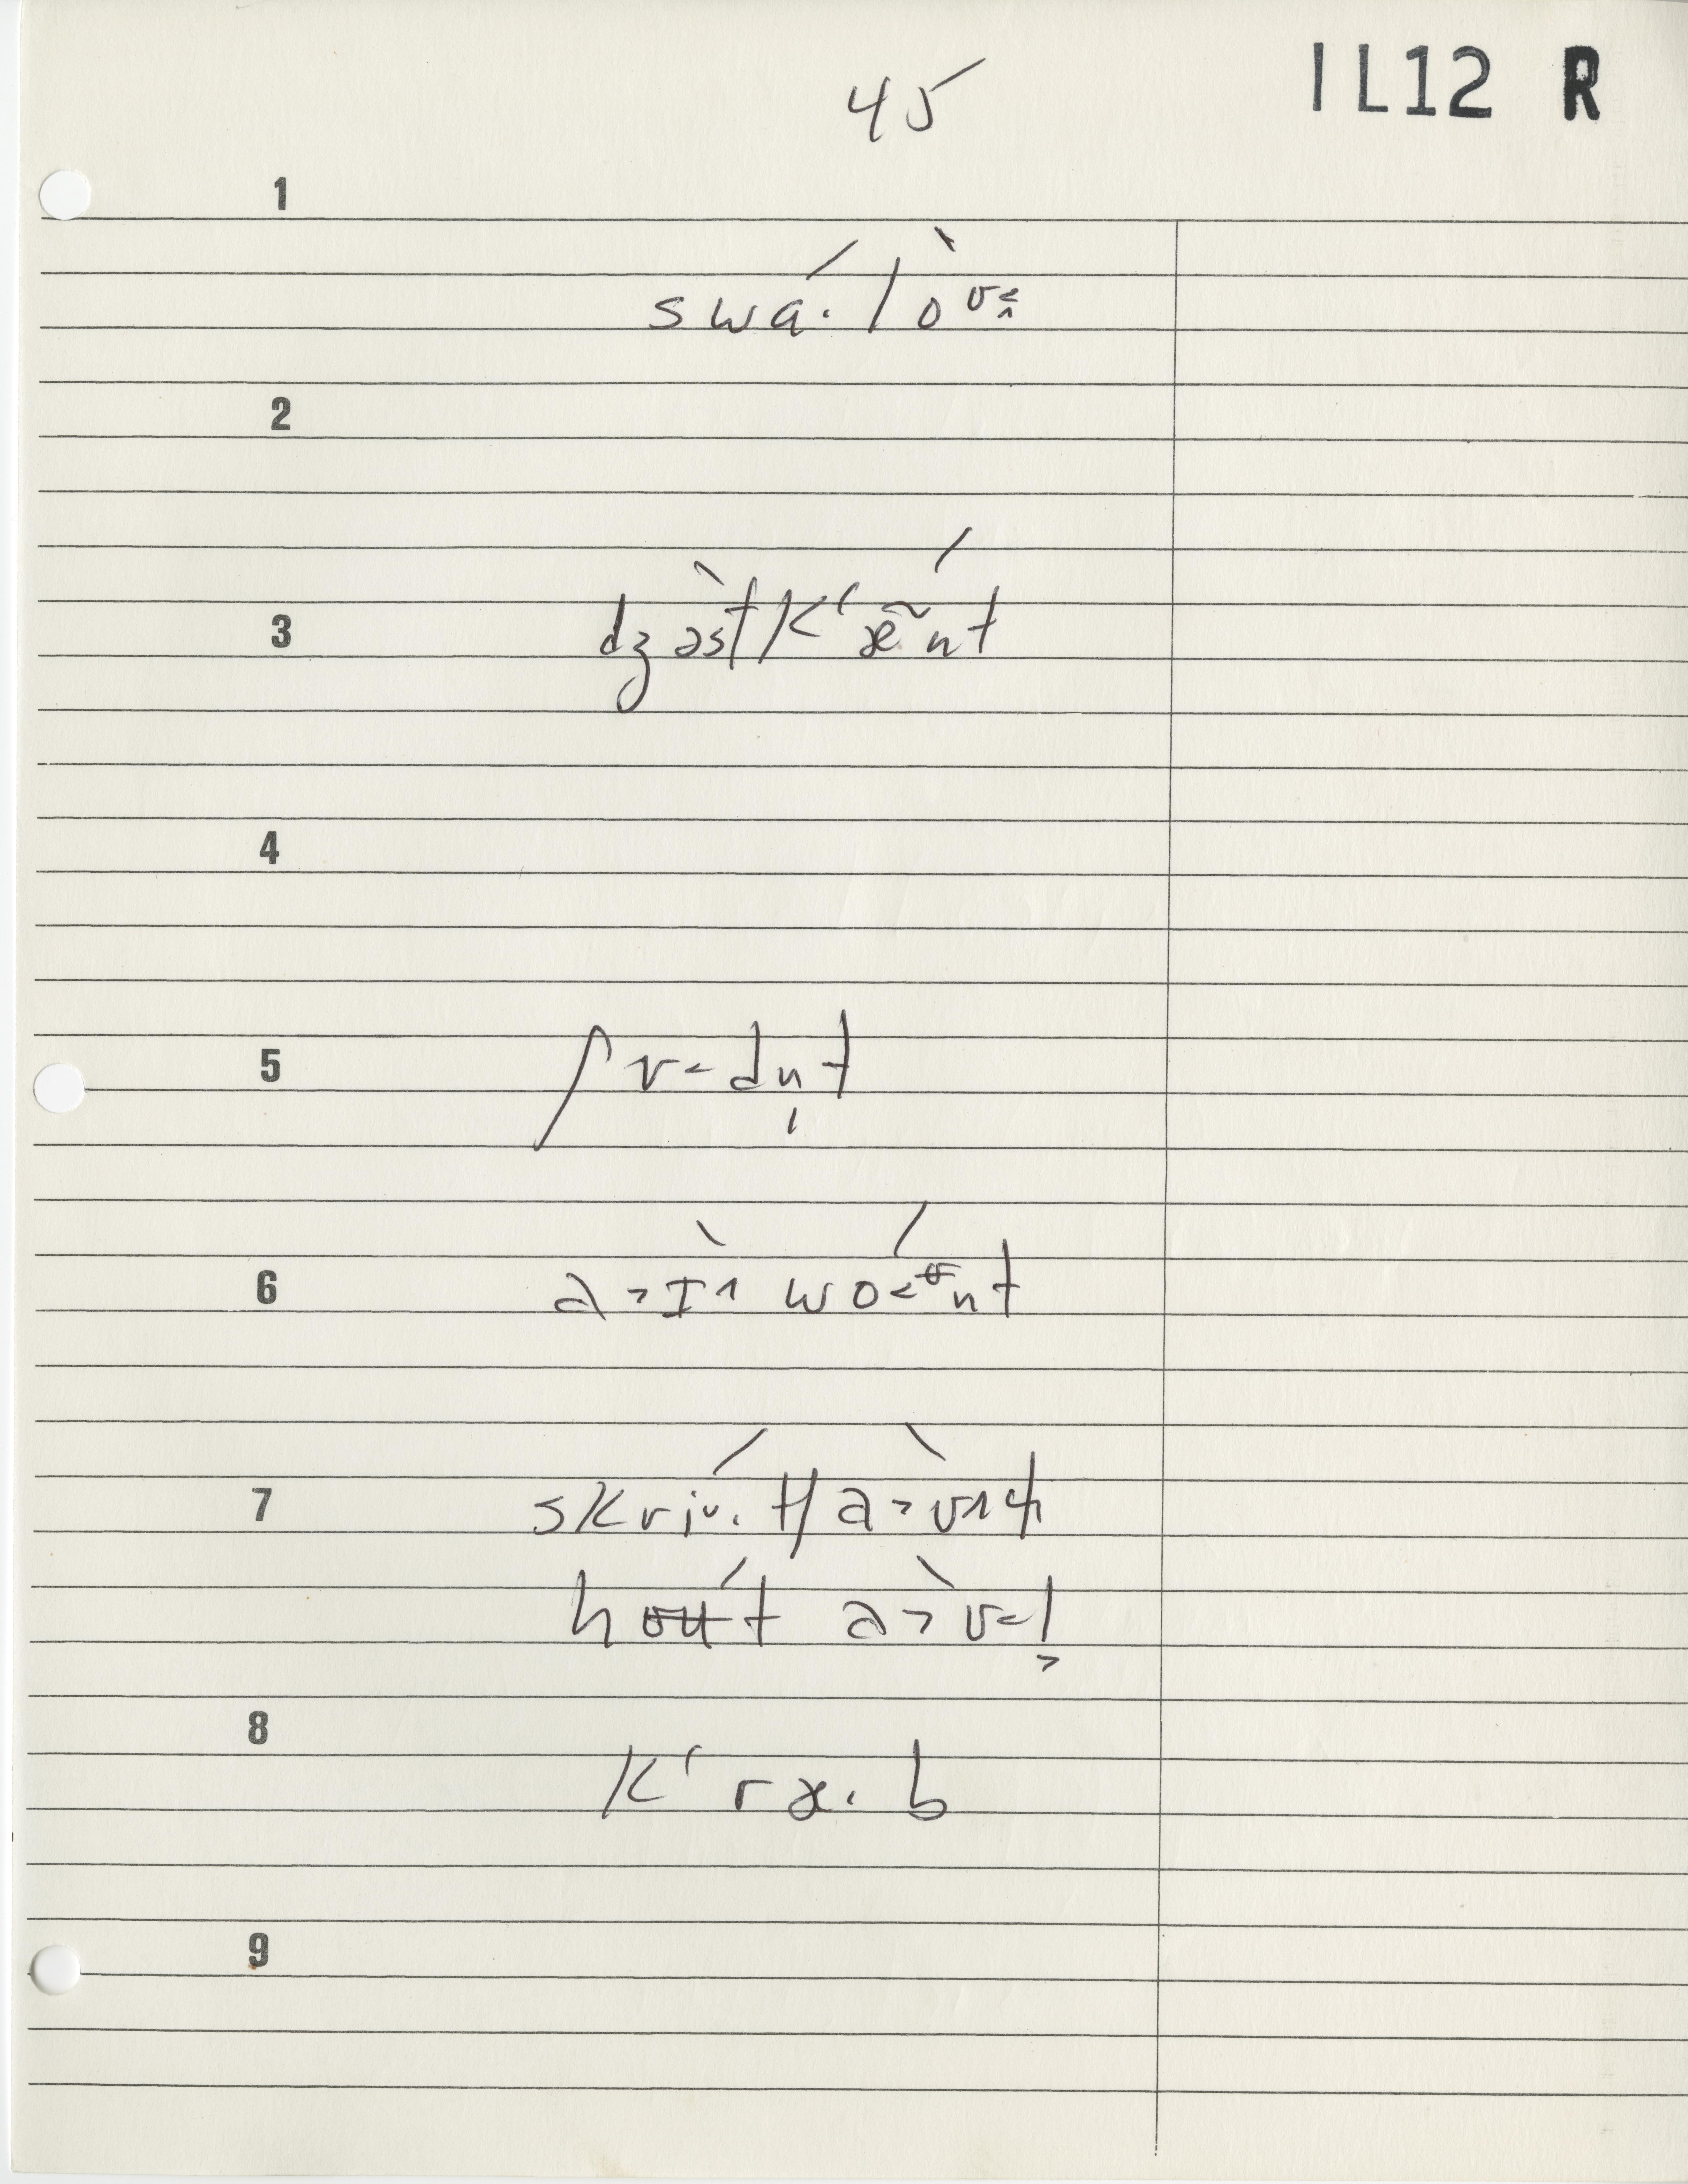 45
1L12 R
1
swɑ́· lòᶷ˂˄
2
3
dʒə̀st kʻæ̃́nt
4
5
ʃʊ˂dn̩t
6
a˃ɪ˄ wó˂ᶷnt
7
skríᶹ·tʃ a˃ʊ̀˄ɫ
hʉ́t a˃ʊ̀˂l
8
kʻræ·b
9